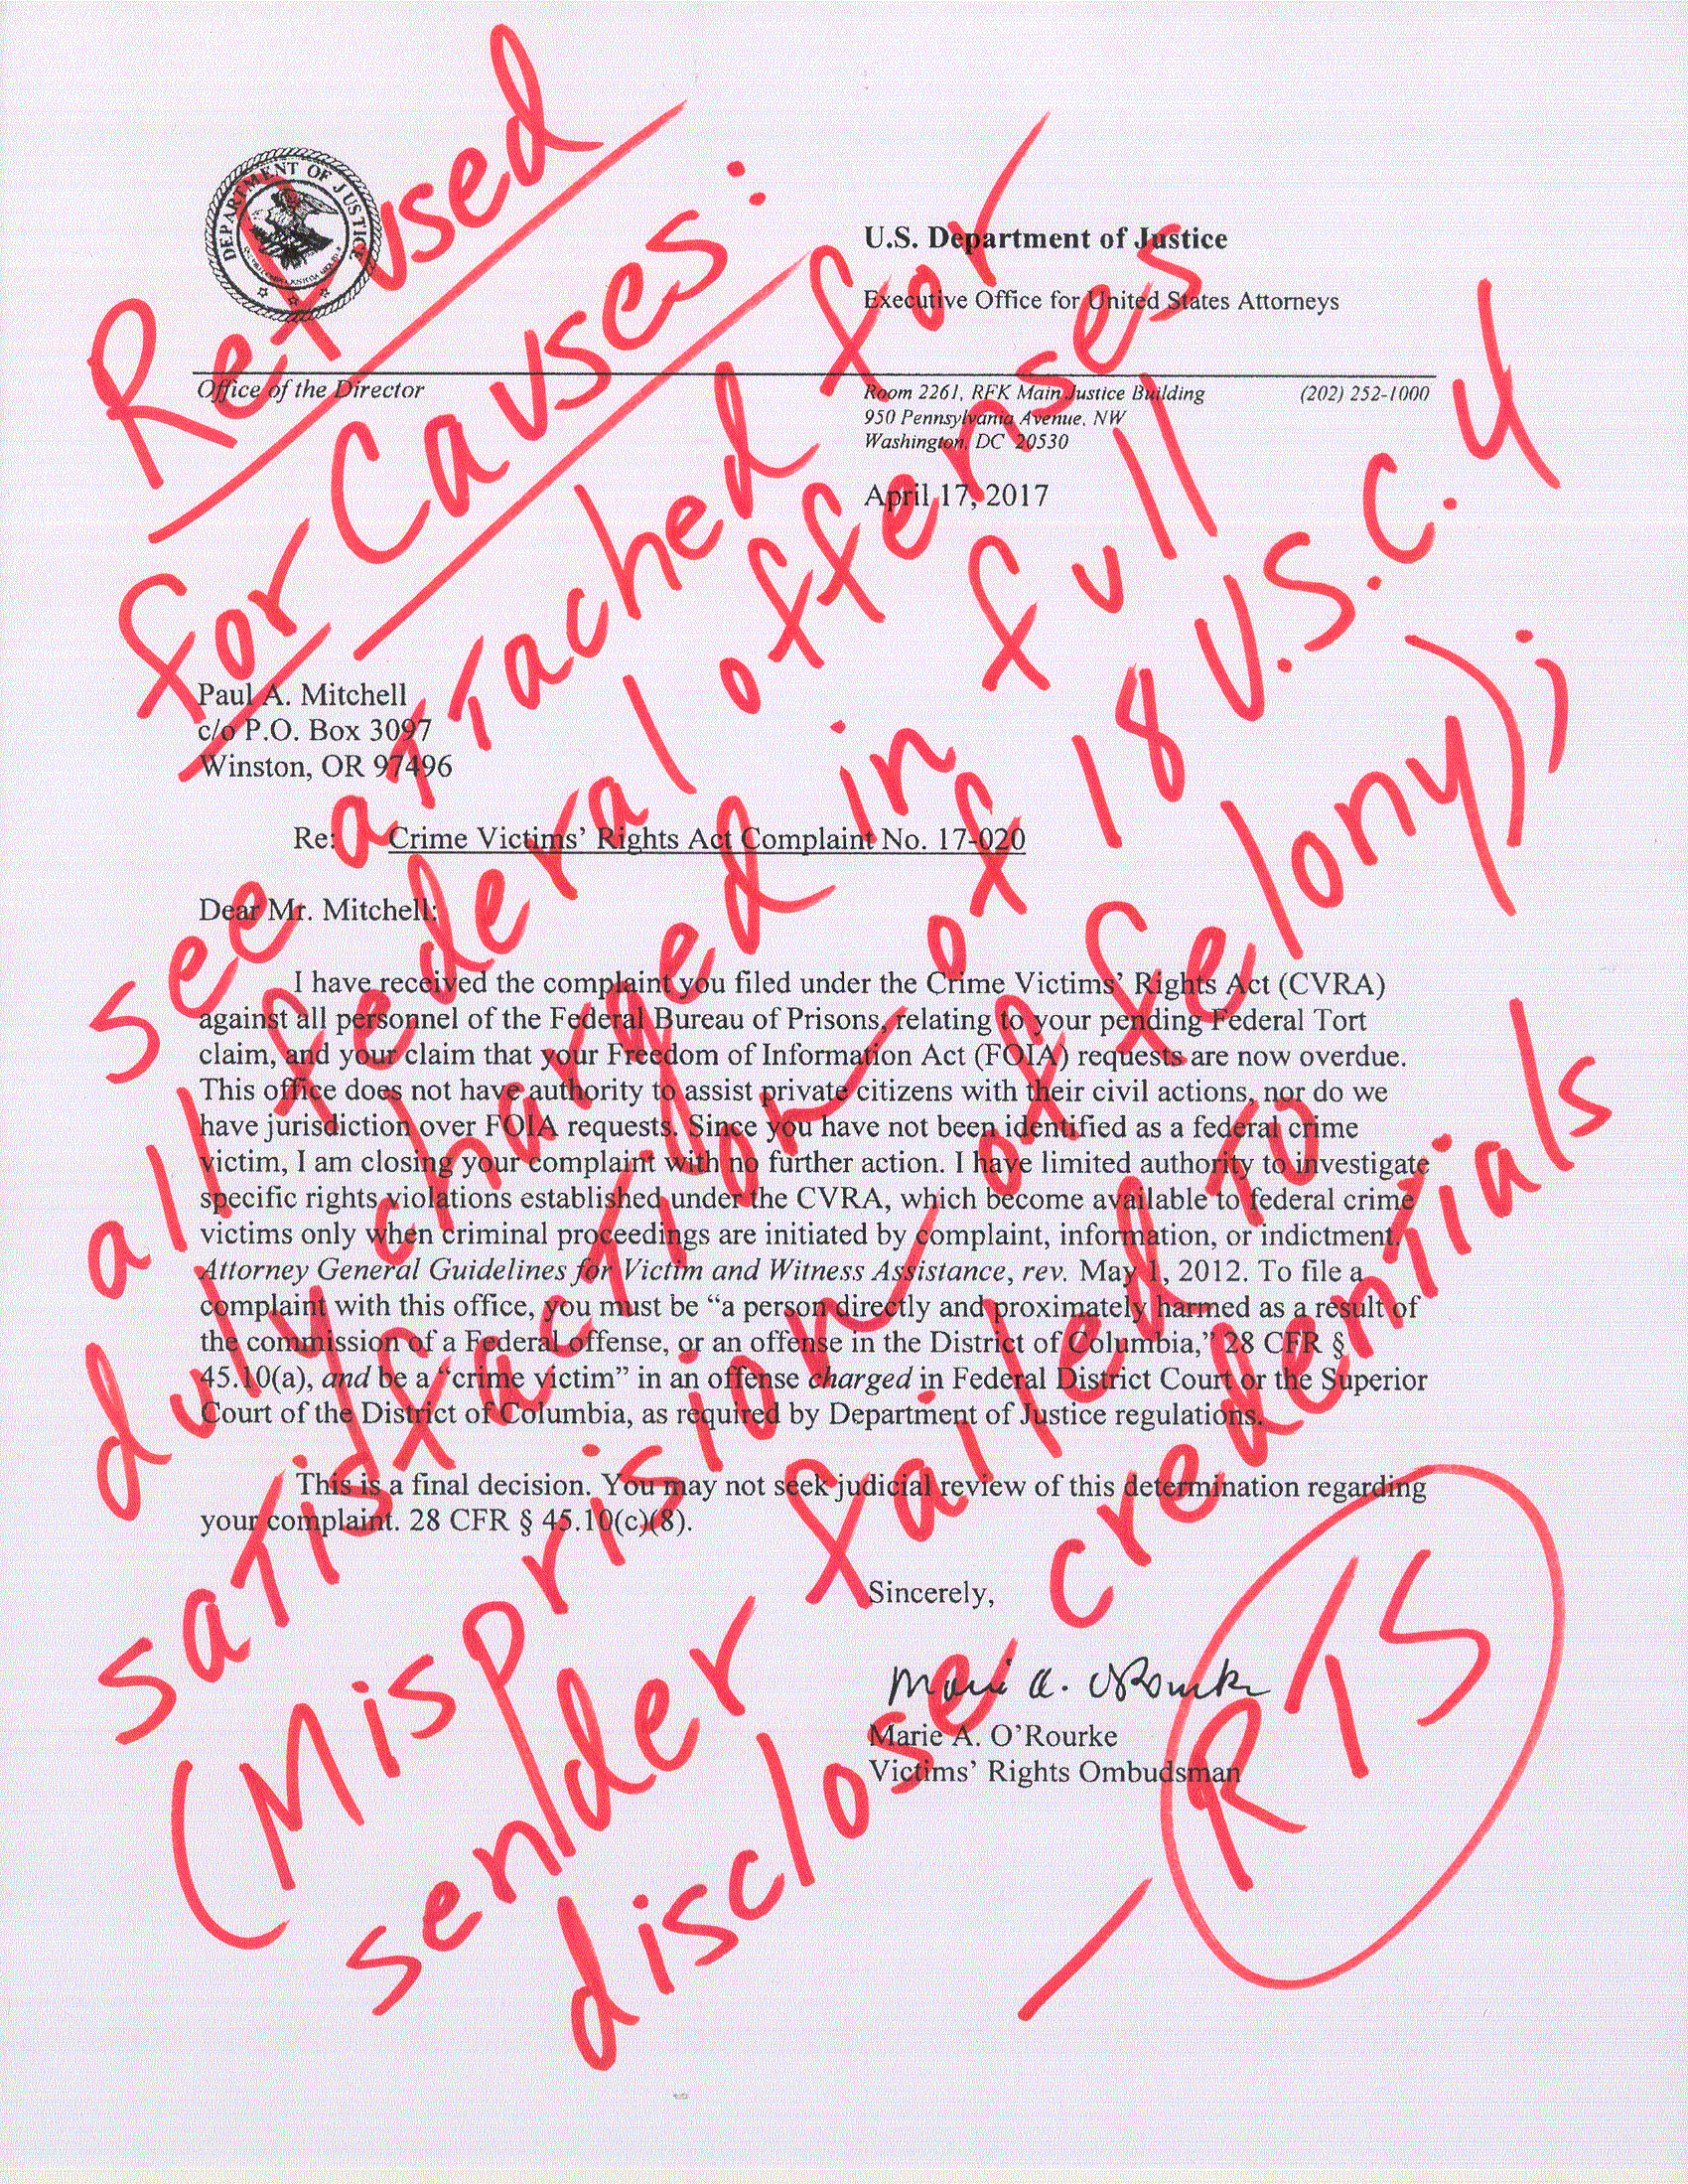 DEPARTMENT OF JUSTICE
U.S. Department of Justice
Executive Office for United States Attorneys
Office of the Director
Room 2261, RFK Main Justice Building (202) 252-1000
950 Pennsylvania Avenue, NW
Washington, DC 20530
April 17, 2017
Paul A. Mitchell
c/o P.O. Box 3097
Winston, OR 97496
Re: Crime Victims' Rights Act Complaint No. 17-020
Dear Mr. Mitchell:
I have received the complaint you filed under the Crime Victims' Rights Act (CVRA)
against all personnel of the Federal Bureau of Prisons, relating to your pending Federal Tort
claim, and your claim that your Freedom of Information Act (FOIA) requests are now overdue.
This office does not have authority to assist private citizens with their civil actions, nor do we
have jurisdiction over FOIA requests. Since you have not been identified as a federal crime
victim, I am closing your complaint with no further action. I have limited authority to investigate
specific rights violations established under the CVRA, which become available to federal crime
victims only when criminal proceedings are initiated by complaint, information, or indictment.
Attorney General Guidelines for Victim and Witness Assistance, rev. May 1, 2012. To file a
complaint with this office, you must be “a person directly and proximately harmed as a result of
the commission of a Federal offense, or an offense in the District of Columbia,” 28 CFR §
45.10(a), and be a “crime victim” in an offense charged in Federal District Court or the Superior
Court of the District of Columbia, as required by Department of Justice regulations.
This is a final decision. You may not seek judicial review of this determination regarding
your complaint. 28 CFR § 45.10(c)(8).
Sincerely,
Marie A. O'Rourke
Marie A. O'Rourke
Victims' Rights Ombudsman
Refused
for Causes:
see attached for
all federal offenses
duly charged in full
satisfaction of 18 U.S.C. 4
(Misprision of felony);
sender failed to
disclose credentials
— RTS